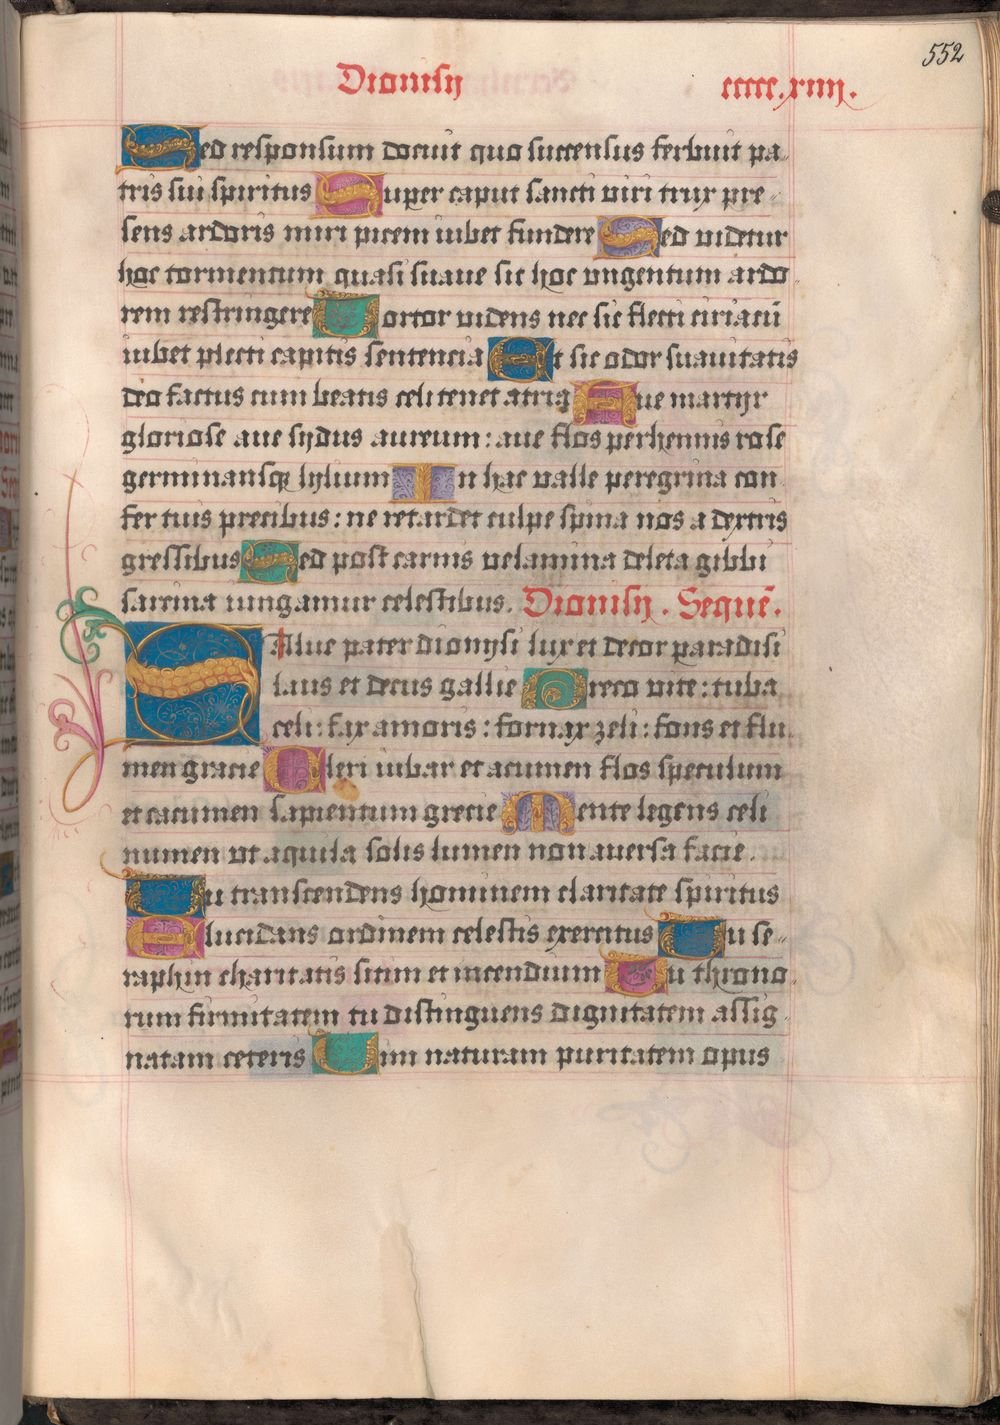 552
Dionisij ccccc.xiiij.
Sed responsum docuit quo succensus ferbuit pa
tris sui spiritus Super caput sancti viri trux pre
sens ardoris miri picem iubet fundere Sed videtur
hoc tormentum quasi suaue sit hoc vngentum ardo
rem restringere Tortor videns nec sic flecti ciriacū
iubet plecti capitis sentencia Et sic odor suauitatis
deo factus cum beatis celi tenet atria Aue martyr
gloriose aue sydus aureum: aue flos perhennis rose
germinansq lylium In hac valle peregrina con
fer tuis precibus: ne retardet culpe spina nos a dextris
gressibus Sed post carnis velamina deleta gibbi
sarcina iungamur celestibus. Dionisij. Sequē.
SAlue pater dionysi lux et decor paradisi
laus et decus gallie Greco vite: tuba
celi: fax amoris: fornax zeli: fons et flu
men gracie Cleri iubar et acumen flos speculum
et cacumen sapientum grecie Mente legens celi
numen vt aquila solis lumen non auersa facie.
Tu transcendens hominem claritate spiritus
Elucidans ordinem celestis exercitus Tu se
raphin charitatis sitim et incendium Tu throno
rum firmitatem tu distinguens dignitatem assig
natam ceteris Vim naturam puritatem opus